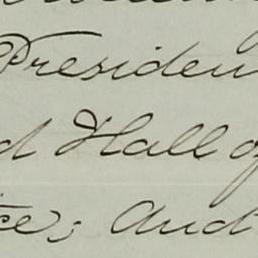 Presiden
d Hall of
ce; And